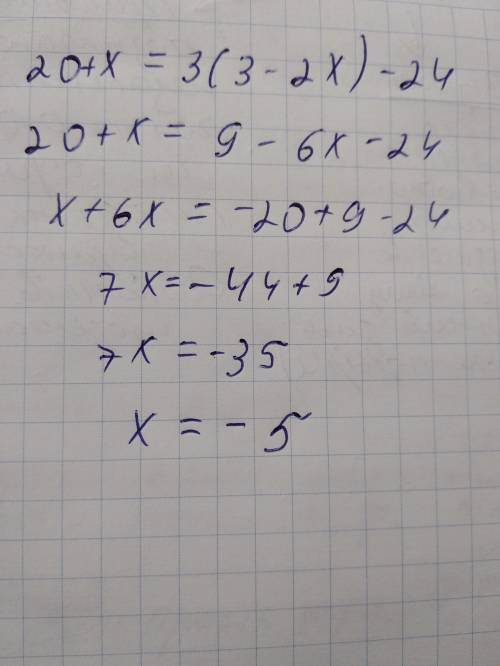 20+x = 3(3-2x)-24
20+x = 9-6x-24
x+6x = -20+9-24
7x=-44+9
7x=-35
x = -5